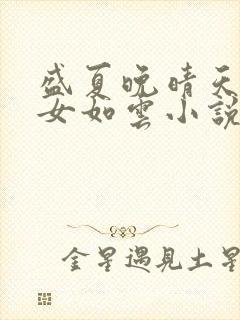 盛夏晚晴天
女如雲小說
金星遇見土星